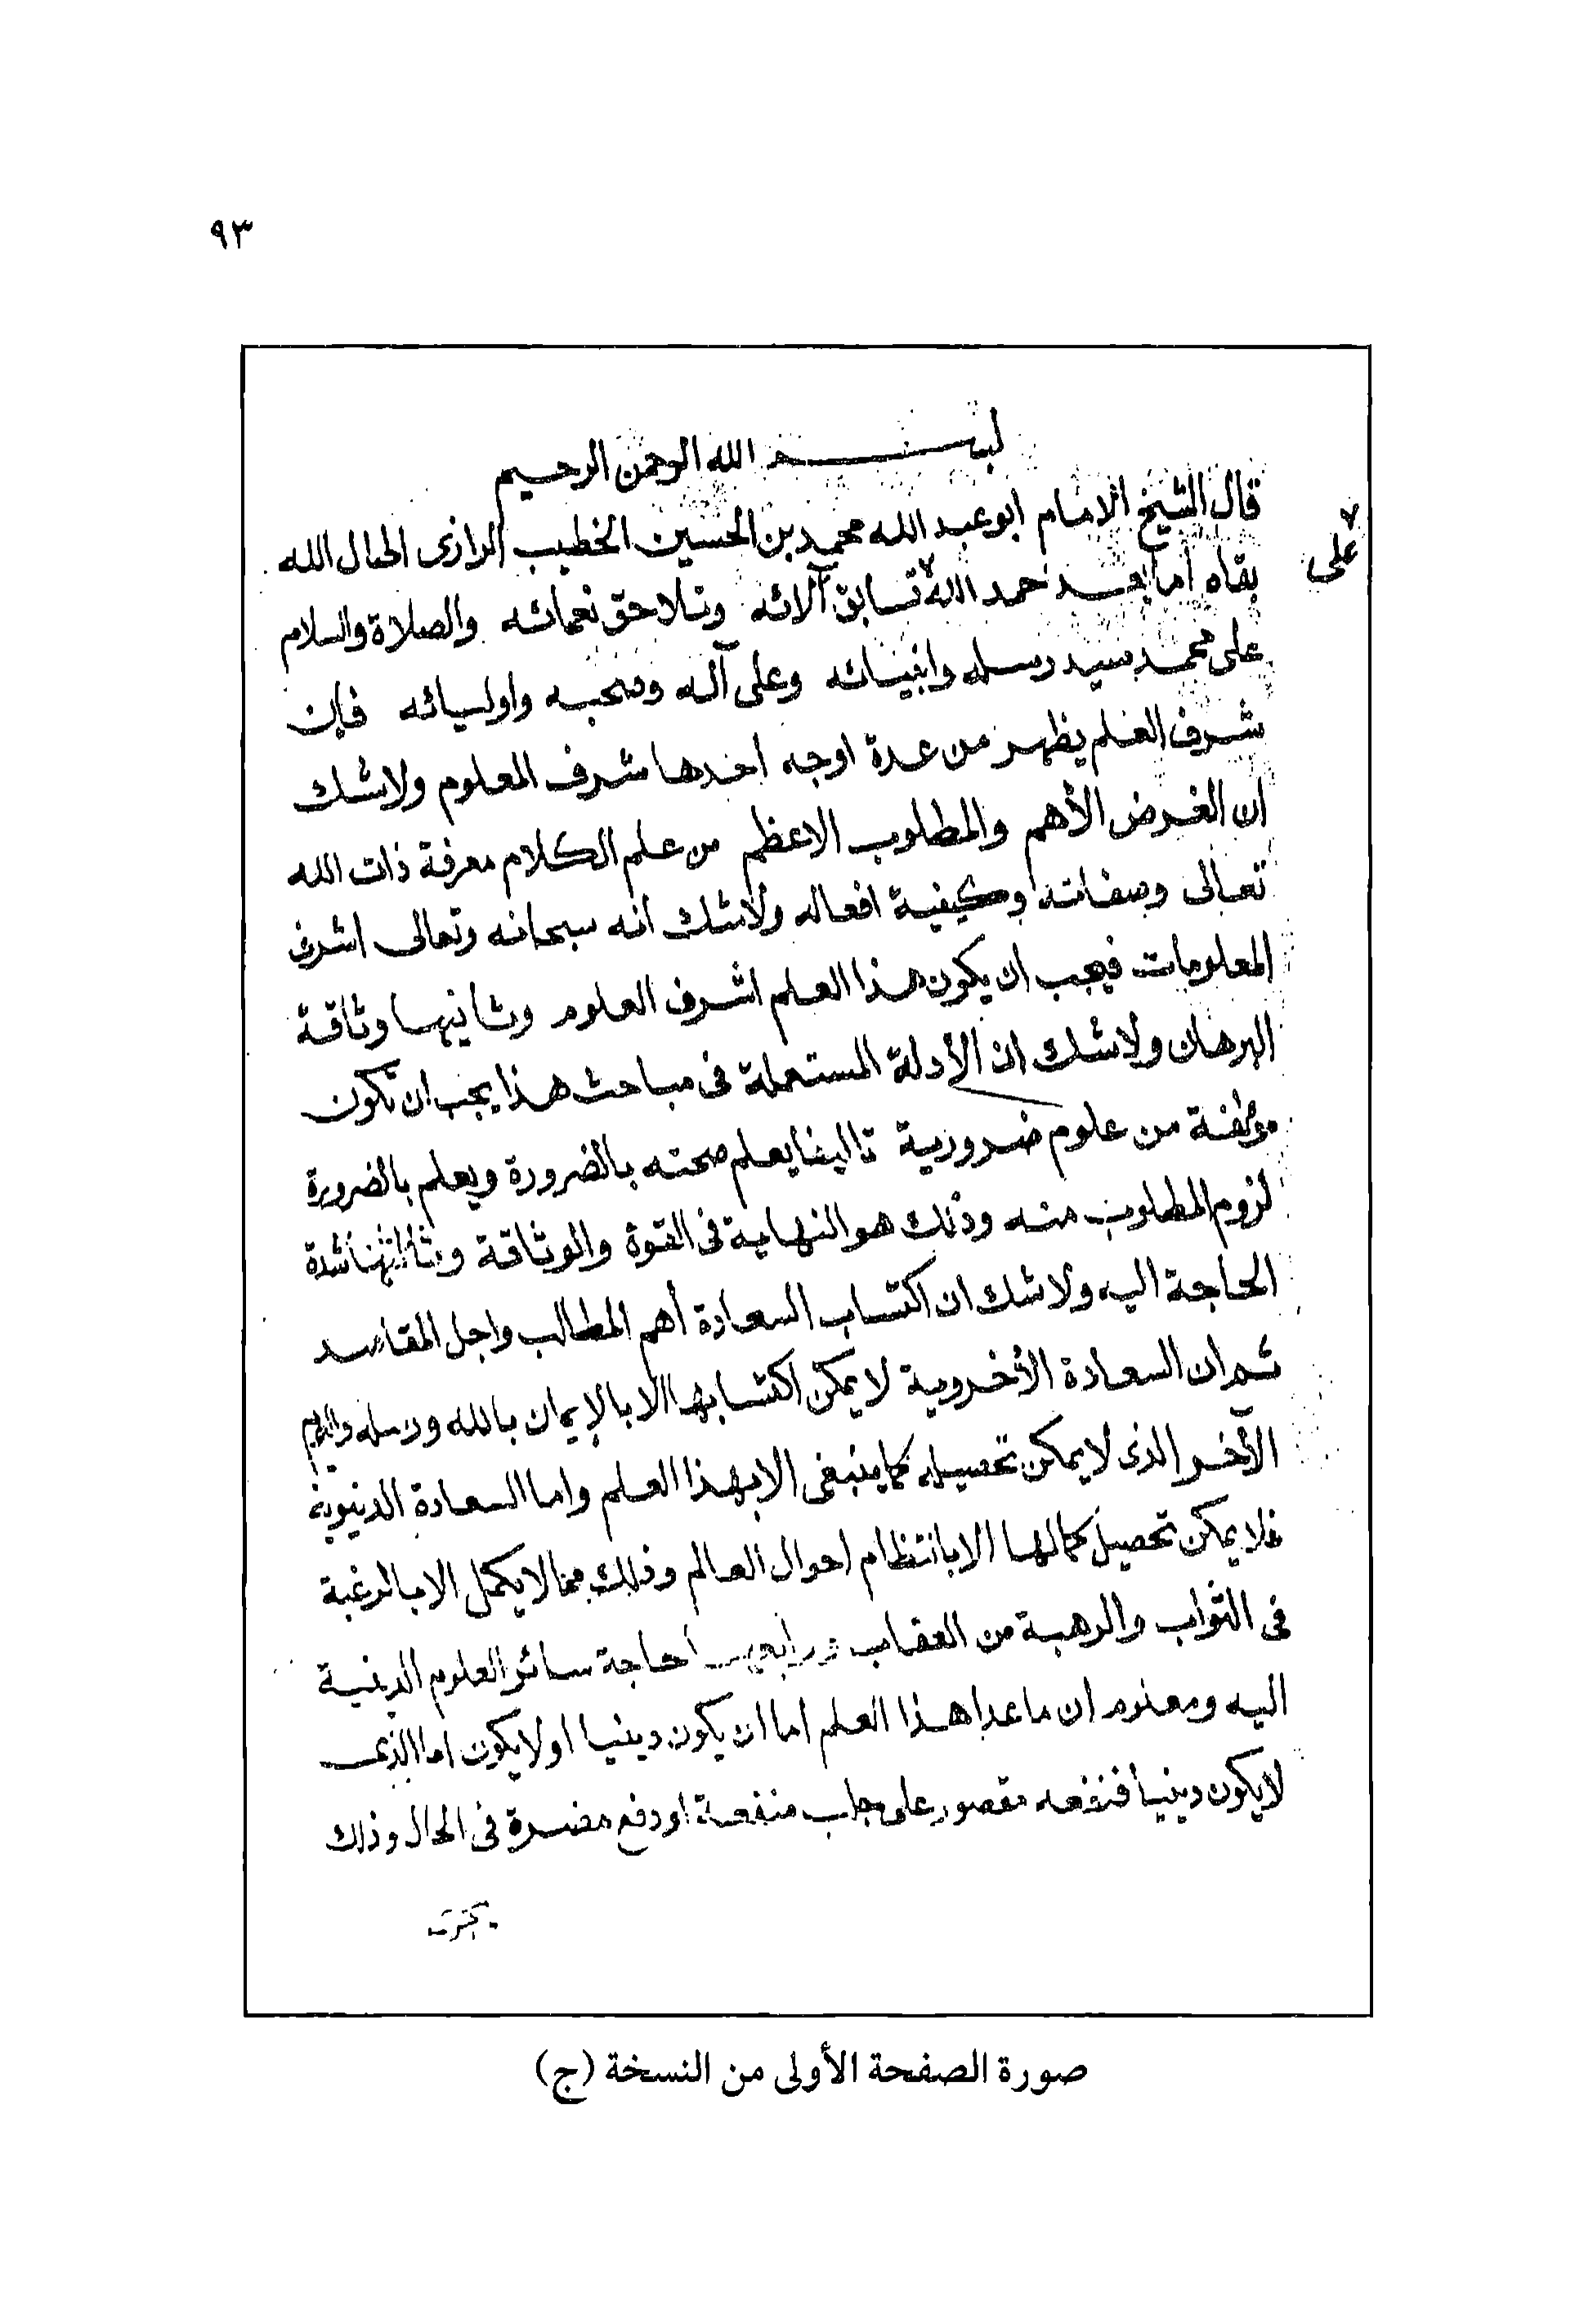 ٩٣
بسم الله الرحمن الرحيم
قال الشيخ الامام ابو عبد الله محمد بن الحسين الخطيب الرازى اطال الله
على
بقاه اما بعد حمد الله تسابق آلائه وتلاحق نعمائه والصلاة والسلام
على محمد سيد رسله وانبيائه وعلى آله وصحبه واوليائه فإن
شرف العلم يظهر من عدة اوجه احدها شرف المعلوم ولا شك
ان الغرض الأهم والمطلوب الاعظم من علم الكلام معرفة ذات الله
تعالى وصفاته وكيفية افعاله ولا شك انه سبحانه وتعالى اشرف
المعلومات فيجب ان يكون هذا العلم اشرف العلوم وثانيها وثاقة
البرهان ولا شك ان الأدلة المستعملة فى مباحث هذا يجب ان تكون
مؤلفة من علوم ضرورية تاليفا يعلم صحته بالضرورة ويعلم بالضرورة
لزوم المطلوب منه وذلك هو النهاية فى القوة والوثاقة وثالثها شدة
الحاجة اليه ولا شك ان اكتساب السعادة أهم المطالب واجل المقاصد
ثم ان السعادة الأخروية لا يمكن اكتسابها الا بالإيمان بالله ورسله واليوم
الآخر الذى لا يمكن تحصيله كما ينبغى الا بهذا العلم واما السعادة الدنيوية
فلا يمكن تحصيل كمالها الا بانتظام احوال العالم وذلك مما لا يكمل الا بالرغبة
فى الثواب والرهبة من العقاب ورابعها حاجة سائر العلوم الدينية
اليه ومعلوم ان ما عدا هذا العلم اما ان يكون دينيا او لا يكون اما الذى
لا يكون دينياً فنفعه مقصور على جلب منفعة او دفع مضرة فى الحال وذلك
صورة الصفحة الأولى من النسخة (ج)